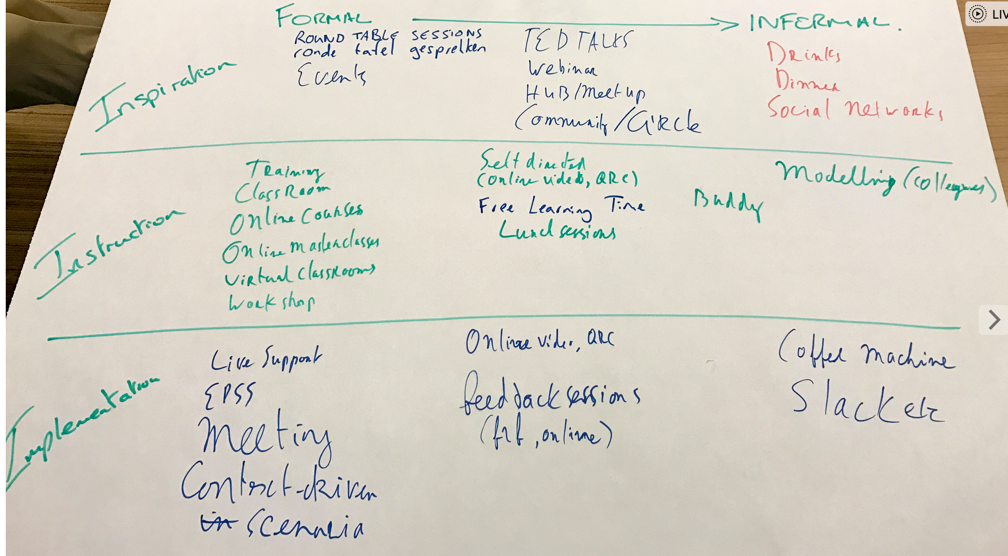 FORMAL → INFERMAL.
Inspiration
ROUND TABLE SESSIONS
ronde tafel gesprekken
Events
TED TALKS
Webinar
HUB/Meetup
Community/Circle
Drinks
Dinner
Social Networks
Instruction
Training
ClassRoom
Online Courses
Online Masterclasses
Virtual Classrooms
Workshop
Self directed
(online video, QRC)
Free Learning Time
Lunch sessions
Buddy
Modelling (colleagues)
Implementation
Live Support
EPSS
Meeting
Context-driven
in scenaria
Online video, QRC
feedback sessions
(f2f, online)
Coffee machine
Slack
LIV